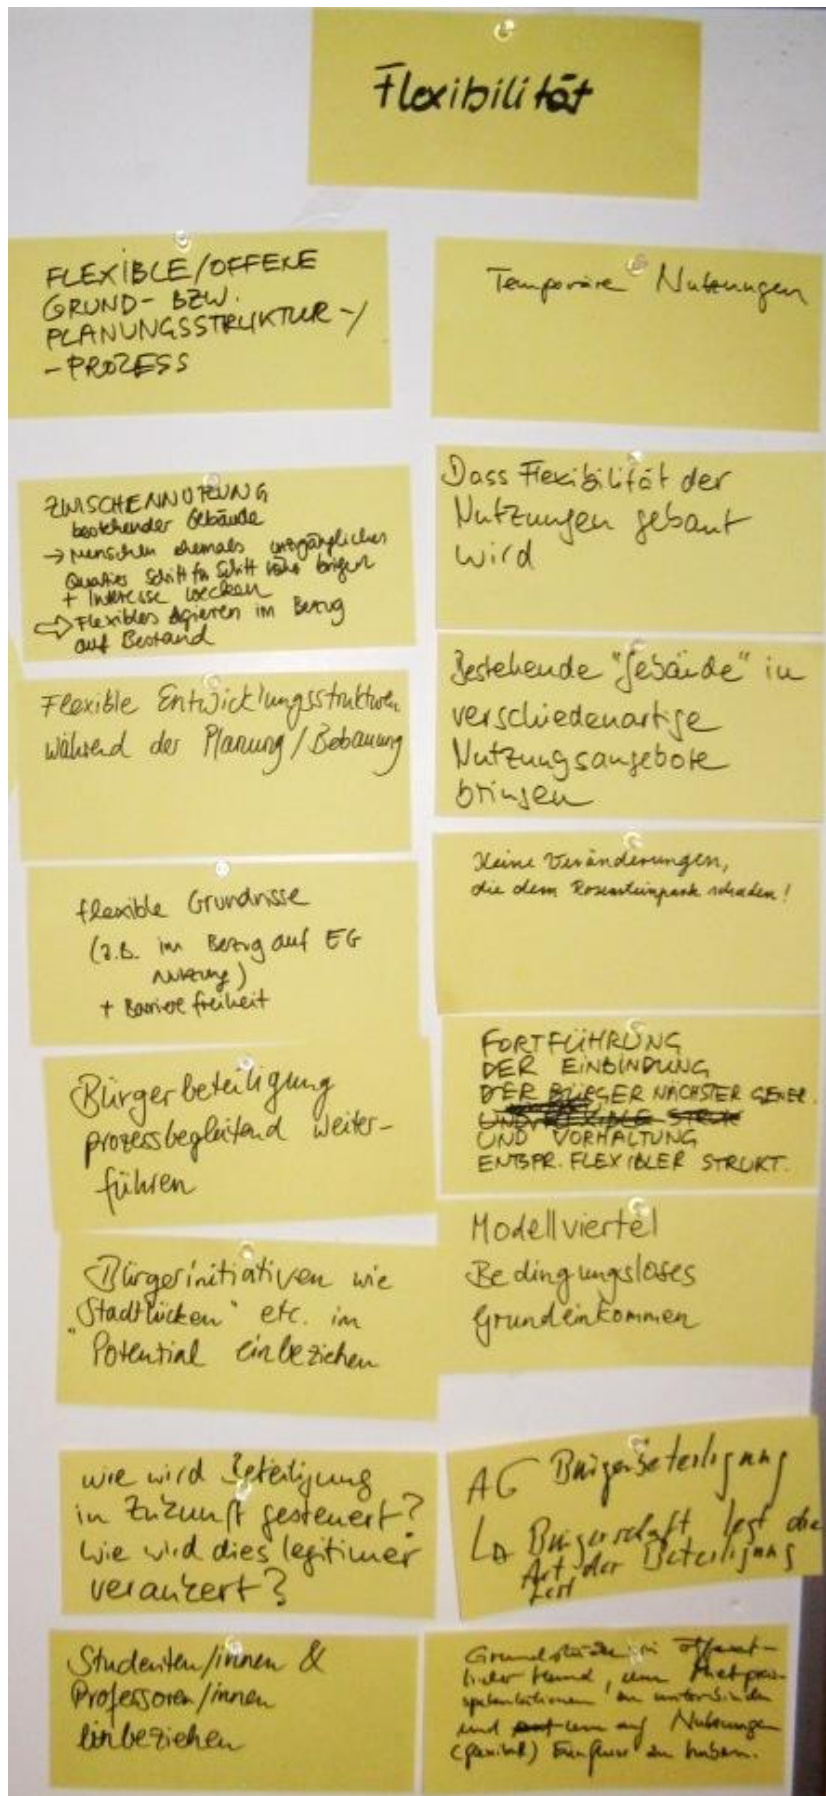 Flexibilität
FLEXIBLE/OFFENE
GRUND- BZW.
PLANUNGSSTRUKTUR-/
-PROZESS
ZWISCHENNUTZUNG
bestehender Gebäude
→ Menschen ehemals unzugängliches
Quartier Schritt für Schritt näher bringen
+ Interesse wecken
⇨ Flexibles Agieren im Bezug
auf Bestand
Flexible Entwicklungsstrukturen
während der Planung/Bebauung
flexible Grundrisse
(z.B. im Bezug auf EG
Nutzung)
+ Barriere freiheit
Bürgerbeteiligung
prozessbegleitend weiter-
führen
Bürgerinitiativen wie
"Stadtlücken" etc. im
Potential einbeziehen
wie wird Beteiligung
in Zukunft gesteuert?
Wie wird dies legitimer
verankert?
Studenten/innen &
Professoren/innen
einbeziehen
Temporäre Nutzungen
Dass Flexibilität der
Nutzungen gebaut
wird
Bestehende "Gebäude" in
verschiedenartige
Nutzungsangebote
bringen
Keine Veränderungen,
die dem Rosensteinpark schaden!
FORTFÜHRUNG
DER EINBINDUNG
DER BÜRGER NÄCHSTER GENER.
UND FLEXIBLE STRUK
UND VORHALTUNG
ENTSPR. FLEXIBLER STRUKT.
Modellviertel
Bedingungsloses
Grundeinkommen
AG Bürgerbeteiligung
↳ Bürgerschaft legt die
Art der Beteiligung
fest
Grundstücke in öffent-
licher Hand, um Mietpreis-
spekulationen zu unterbinden
und um auf Nutzungen
(flexibel) Einfluss zu haben.